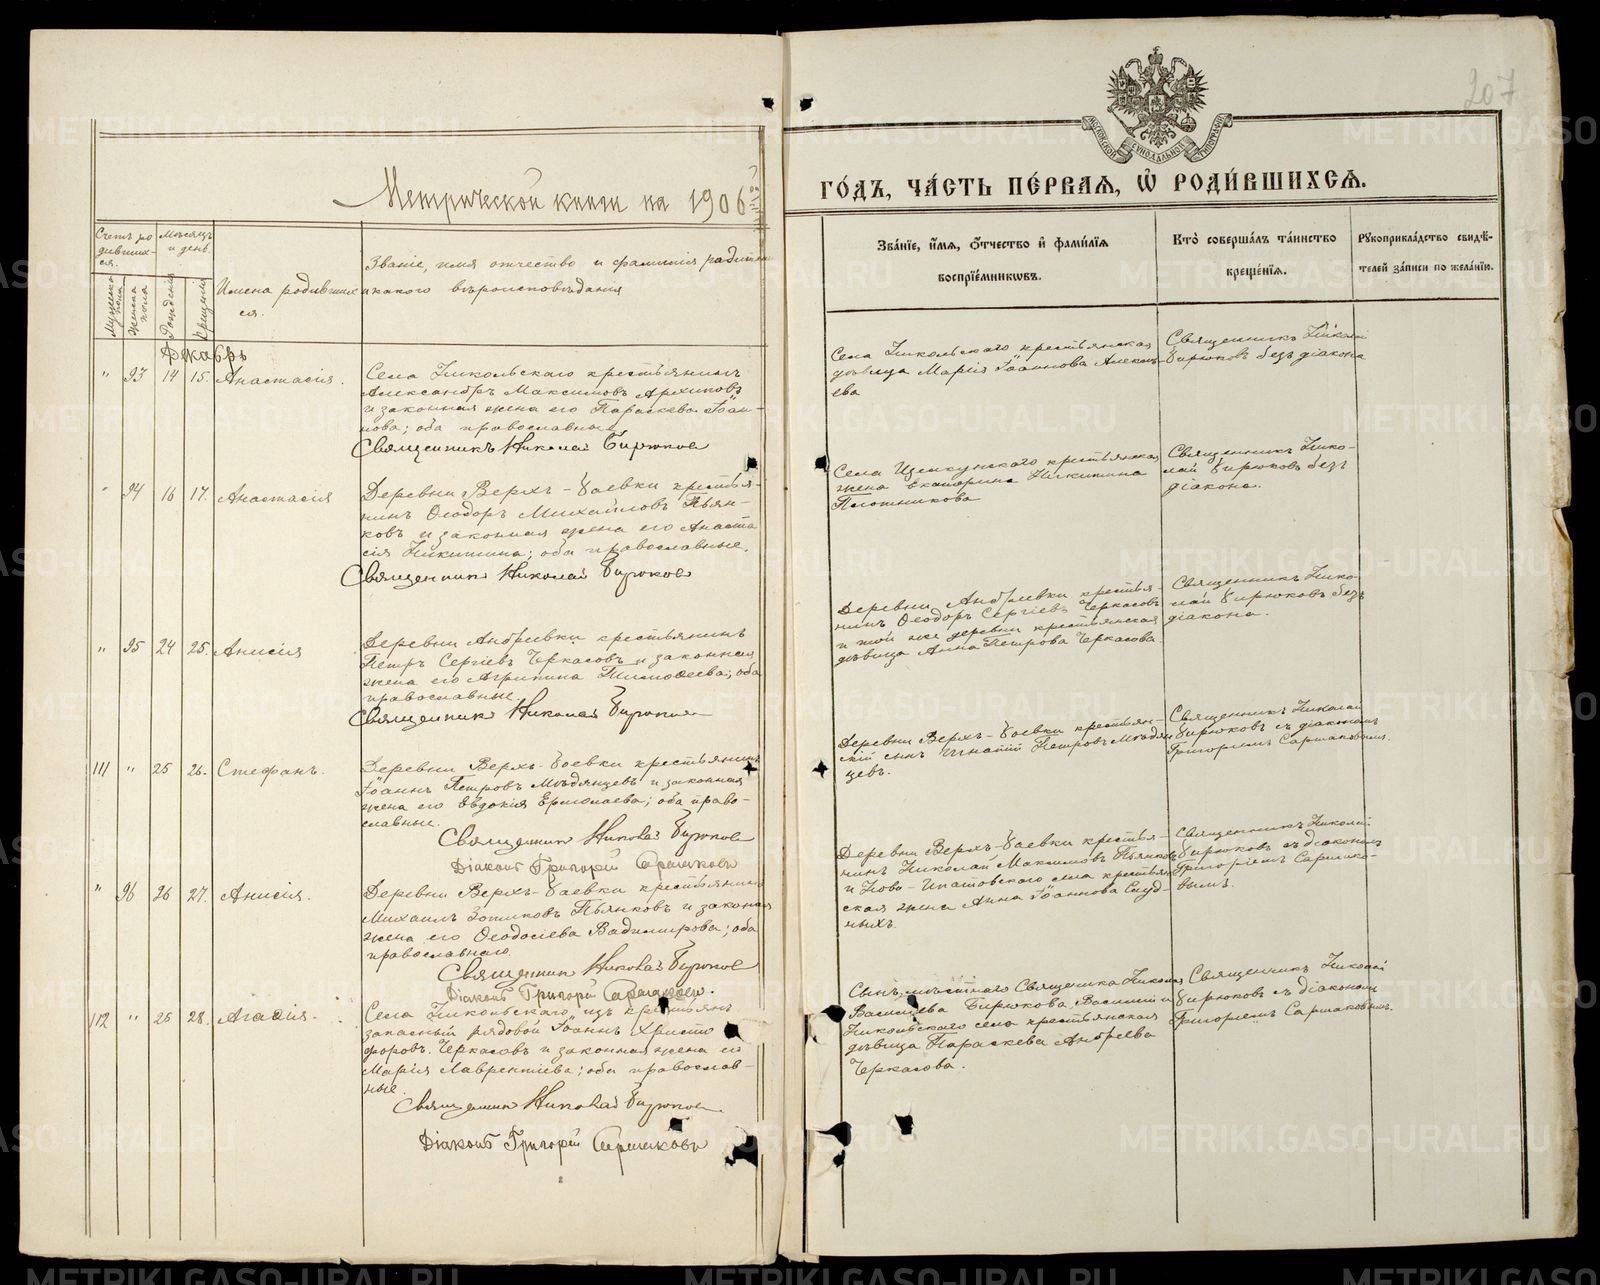 207
МОСКОВСКОЙ СѴНОДАЛЬНОЙ ТИПОГРАФІИ
Метрической книги на 1906
ГО́ДЪ, ЧА́СТЬ ПЕ́РВАЯ, Ѡ҆ РОДИ́ВШИХСЯ.
Счетъ ро
дивших-
ся.
Мѣсяцъ
и день
Мужеска
пола
Женска
пола
Рожденія
Крещенія
Имена родивших
ся.
Званіе, имя отчество и фамилія родителей
и какого вѣроисповѣданія
Зва́нїе, и҆́мя, ѻ҆́тчество и҆ фамі́лїя
воспрїе́мникѡвъ.
Кто̀ соверша́лъ та́инство
креще́нїя.
Рꙋкоприкла́дство свидѣ́-
телей за́писи по жела́нїю.
Декабрь
" 93 14 15. Анастасія.
Села Никольскаго крестьянинъ
Александръ Максимовъ Архиповъ
и законная жена его Параскева Іоан-
нова; оба православные
Священникъ Николай Бирюков
Села Никольскаго крестьянская
дѣвица Марія Іоаннова Алексѣ-
ева
Священникъ Николай
Бирюковъ безъ діакона
" 94 16 17. Анастасія
Деревни Верхъ-Боевки крестья-
нинъ Ѳеодоръ Михайловъ Пьян-
ковъ и законная жена его Анаста
сія Никитина; оба православные.
Священник Николай Бирюков
Села Щелкунскаго крестьянская
жена Екатерина Никитина
Плотникова
Священникъ Нико-
лай Бирюковъ безъ
діакона.
" 95 24 25. Анисія
Деревни Андреевки крестьянинъ
Петръ Сергіевъ Черкасовъ и законная
жена его Агрипина Тимоѳеева; оба
православные.
Священник Николай Бирюков
Деревни Андреевки крестья-
нинъ Ѳеодоръ Сергіевъ Черкасовъ
и той же деревни крестьянская
дѣвица Анна Петрова Черкасова
Священникъ Нико-
лай Бирюковъ безъ
діакона.
111 " 25 26. Стефанъ.
Деревни Верхъ-Боевки крестьянинъ
Іоаннъ Петровъ Мѣдянцевъ и законная
жена его Евдокія Ермолаева; оба право-
славные.
Священник Николай Бирюков
Діаконъ Григорій Саршаковъ
Деревни Верхъ-Боевки крестьян-
скій сынъ Игнатій Петровъ Мѣдян
цевъ.
Священникъ Николай
Бирюковъ съ діакономъ
Григоріемъ Саршаковымъ.
" 96 26 27. Анисія.
Деревни Верхъ-Боевки крестьянинъ
Михаилъ Зотиковъ Пьянковъ и законная
жена его Ѳеодосіева Вадимирова; оба
православнаго
Священник Николай Бирюков
Діаконъ Григорій Саршаковъ.
Деревни Верхъ-Боевки крестья-
нинъ Николай Максимовъ Пьянковъ
и Ново-Ипатовскаго села крестьян
ская жена Анна Іоаннова
ныхъ.
Священникъ Николай
Бирюковъ съ діакономъ
Григоріемъ Саршако-
вымъ.
112 " 25 28.
Села Никольскаго изъ крестьян
запасный рядовой Іоаннъ Христо
форовъ Черкасовъ и законная жена его
Марія Лаврентіева; оба православ-
ные.
Священник Николай Бирюков
Діаконъ Григорій Саршаковъ
Сынъ мѣстнаго Священника Николая
Васильева Бирюкова Василій и
Никольскаго села крестьянская
дѣвица Параскева Андреева
Черкасова.
Священникъ Николай
Бирюковъ съ діакономъ
Григоріемъ Саршаковымъ.
METRIKI.GASO-URAL.RU